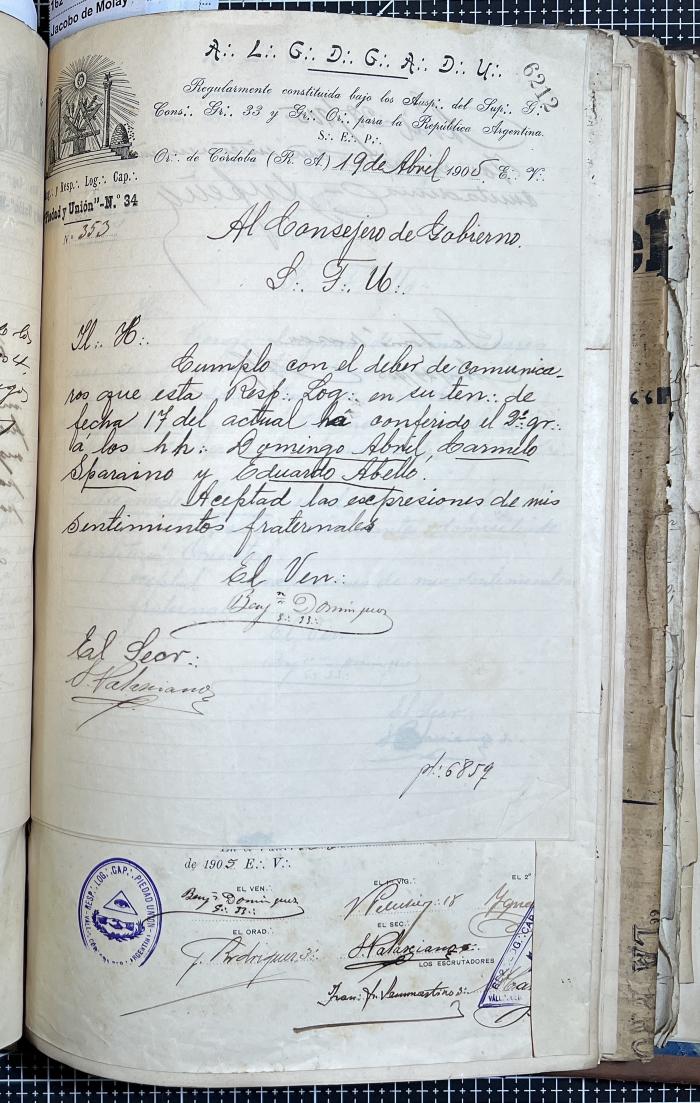 162
Jacobo de Molay
A∴ L∴ G∴ D∴ G∴ A∴ D∴ U∴
6212
Regularmente constituida bajo los Ausp∴ del Sup∴ G∴
Cons∴ Gr∴ 33 y Gr∴ Or∴ para la República Argentina.
S∴ E∴ P∴
Or∴ de Córdoba (R. A) 19 de Abril 1905 E∴ V∴
y Resp∴ Log∴ Cap∴
"Piedad y Unión"-N.º 34
Nº 353
Al Consejero de Gobierno.
S∴ F∴ U∴
Il∴ H∴
Cumplo con el deber de comunica-
ros que esta Resp∴ Log∴ en su ten∴ de
fecha 17 del actual ha conferido el 2º gr∴
á los hh∴ Domingo Abril, Carmelo
Sparaino y Eduardo Abello.
Aceptad las espresiones de mis
sentimientos fraternales
El Ven∴
Benjn Dominguez
g∴ 33∴
El Secr∴
S. Valasciano
pl∴ 6859
de 1905 E∴ V∴
EL VEN∴
EL 1er VIG∴
EL 2º
Benjn Dominguez
g∴ 33∴
18
EL ORAD∴
EL SEC∴
J. Rodriguez
S. Valasciano
LOS ESCRUTADORES
RESP∴ LOG∴ CAP∴ PIEDAD UNION
VALL∴